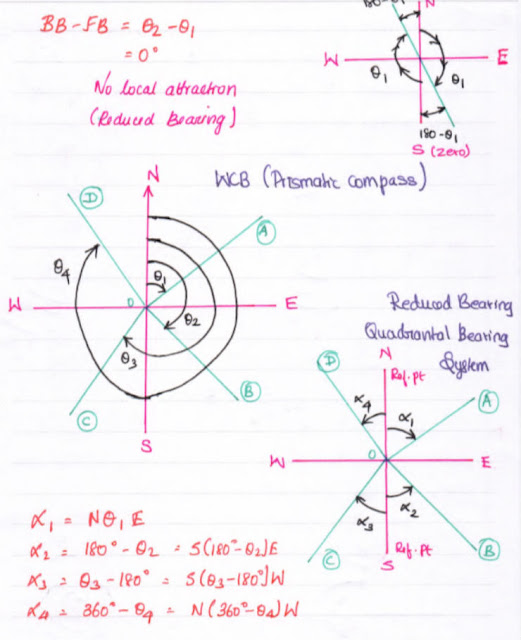 BB-FB = θ2-θ1
= 0°
No local attraction
(Reduced Bearing)
180-θ1
N
W
E
θ1
θ1
180-θ1
S (zero)
WCB (Prismatic compass)
N
D
A
θ4
θ1
W
O
E
θ2
θ3
B
C
S
Reduced Bearing
Quadrantal Bearing
System
N
Ref. pt
D
A
α4
α1
W
O
E
α3
α2
C
B
Ref. pt
S
α1 = Nθ1E
α2 = 180°-θ2 = S(180°-θ2)E
α3 = θ3-180° = S(θ3-180°)W
α4 = 360°-θ4 = N(360°-θ4)W